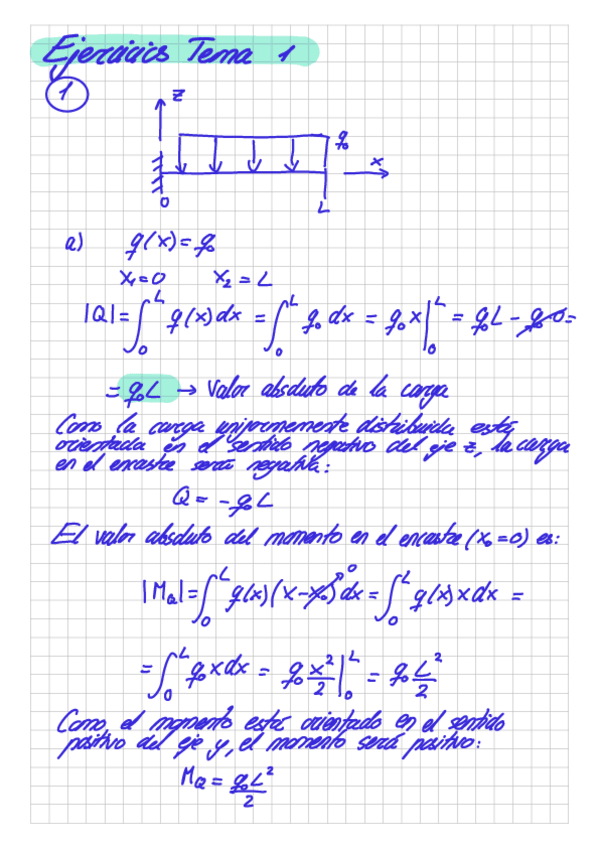 Ejercicios Tema 1
1
z
q₀
x
0
L
a) q(x) = q₀
x₁ = 0 x₂ = L
|Q| = ∫₀ᴸ q(x) dx = ∫₀ᴸ q₀ dx = q₀ x |₀ᴸ = q₀L - q₀·0 =
= q₀L → Valor absoluto de la carga
Como la carga uniformemente distribuida está
orientada en el sentido negativo del eje z, la carga
en el encastre será negativa:
Q = - q₀ L
El valor absoluto del momento en el encastre (x₀ = 0) es:
|M_Q| = ∫₀ᴸ q(x) (x - x₀)⁰ dx = ∫₀ᴸ q(x) x dx =
= ∫₀ᴸ q₀ x dx = q₀ x²/2 |₀ᴸ = q₀ L²/2
Como el momento está orientado en el sentido
positivo del eje y, el momento será positivo:
M_Q = q₀L²/2